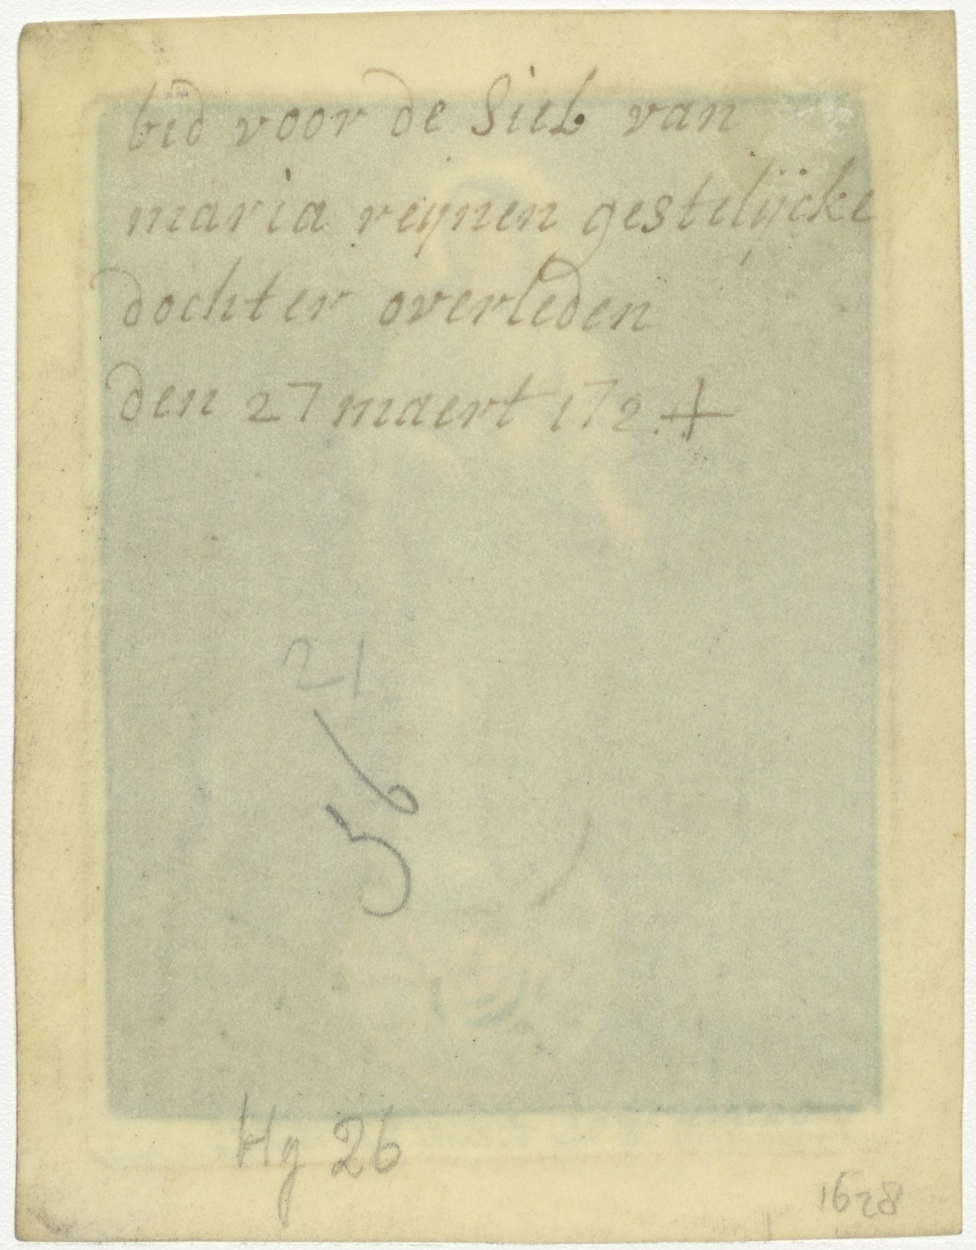 bid voor de Siel van
maria reijnen gestelijcke
dochter overleden
den 27 maert 1724
21
56
Hg 26
1628